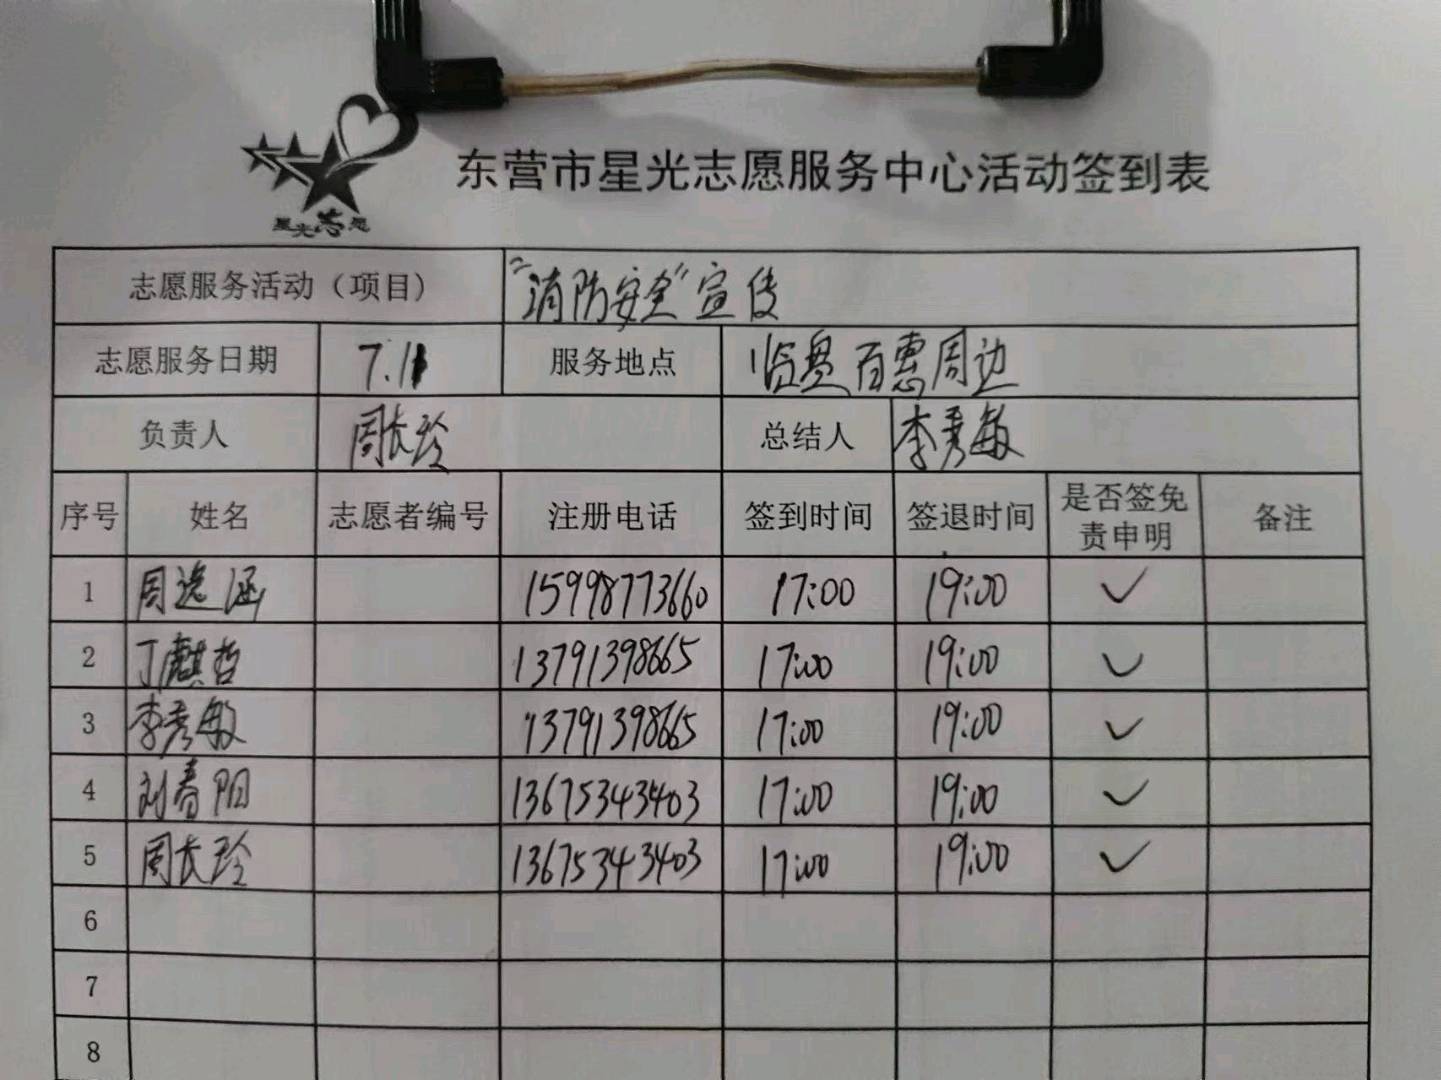 星光志愿
东营市星光志愿服务中心活动签到表
志愿服务活动（项目） “消防安全”宣传
志愿服务日期 7.11 服务地点 临盘百惠周边
负责人 周长玲 总结人 李秀敏
序号 姓名 志愿者编号 注册电话 签到时间 签退时间 是否签免责申明 备注
1 周逸涵 15998773660 17:00 19:00 ✓
2 丁麒哲 13791398665 17:00 19:00 ✓
3 李秀敏 13791398665 17:00 19:00 ✓
4 刘春阳 13675343403 17:00 19:00 ✓
5 周长玲 13675343403 17:00 19:00 ✓
6
7
8